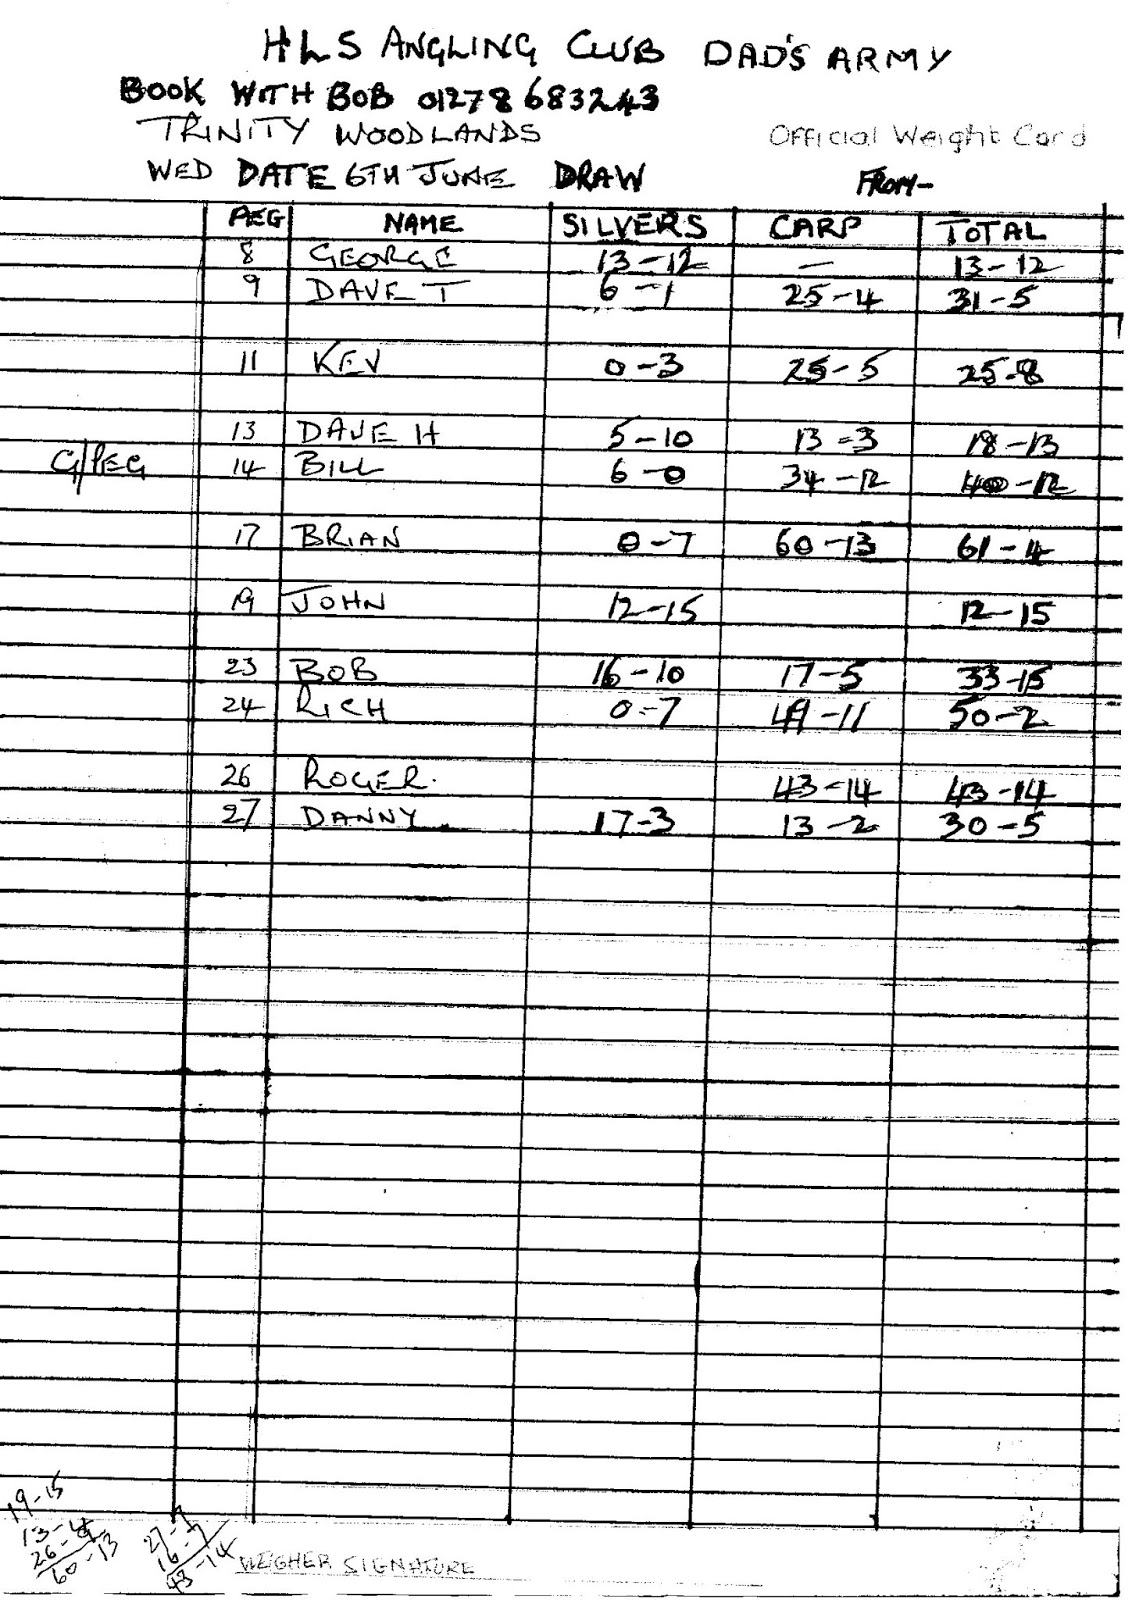 HLS ANGLING CLUB DAD'S ARMY
BOOK WITH BOB 01278 683243
TRINITY WOODLANDS Official Weight Card
WED DATE 6TH JUNE DRAW FROM-
PEG NAME SILVERS CARP TOTAL
8 GEORGE 13-12 — 13-12
9 DAVE T 6-1 25-4 31-5
11 KEV 0-3 25-5 25-8
13 DAVE H 5-10 13-3 18-13
G/PEG 14 BILL 6-0 34-12 40-12
17 BRIAN 0-7 60-13 61-4
19 JOHN 12-15 12-15
23 BOB 16-10 17-5 33-15
24 RICH 0-7 49-11 50-2
26 ROGER. 43-14 43-14
27 DANNY 17-3 13-2 30-5
19-15
13-4
60-13
27-7
16-7
43-14
WEIGHER SIGNATURE